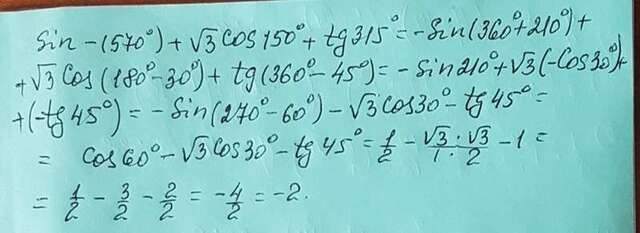 Sin-(570°)+√3 cos150°+tg315°=-Sin(360°+210°)+
+√3 Cos(180°-30°)+tg(360°-45°)=-Sin210°+√3(-Cos30°)+
+(-tg45°)=-Sin(270°-60°)-√3cos30°-tg45°=
= cos60°-√3cos30°-tg45°=1/2-√3·√3/1·2-1=
= 1/2-3/2-2/2=-4/2=-2.